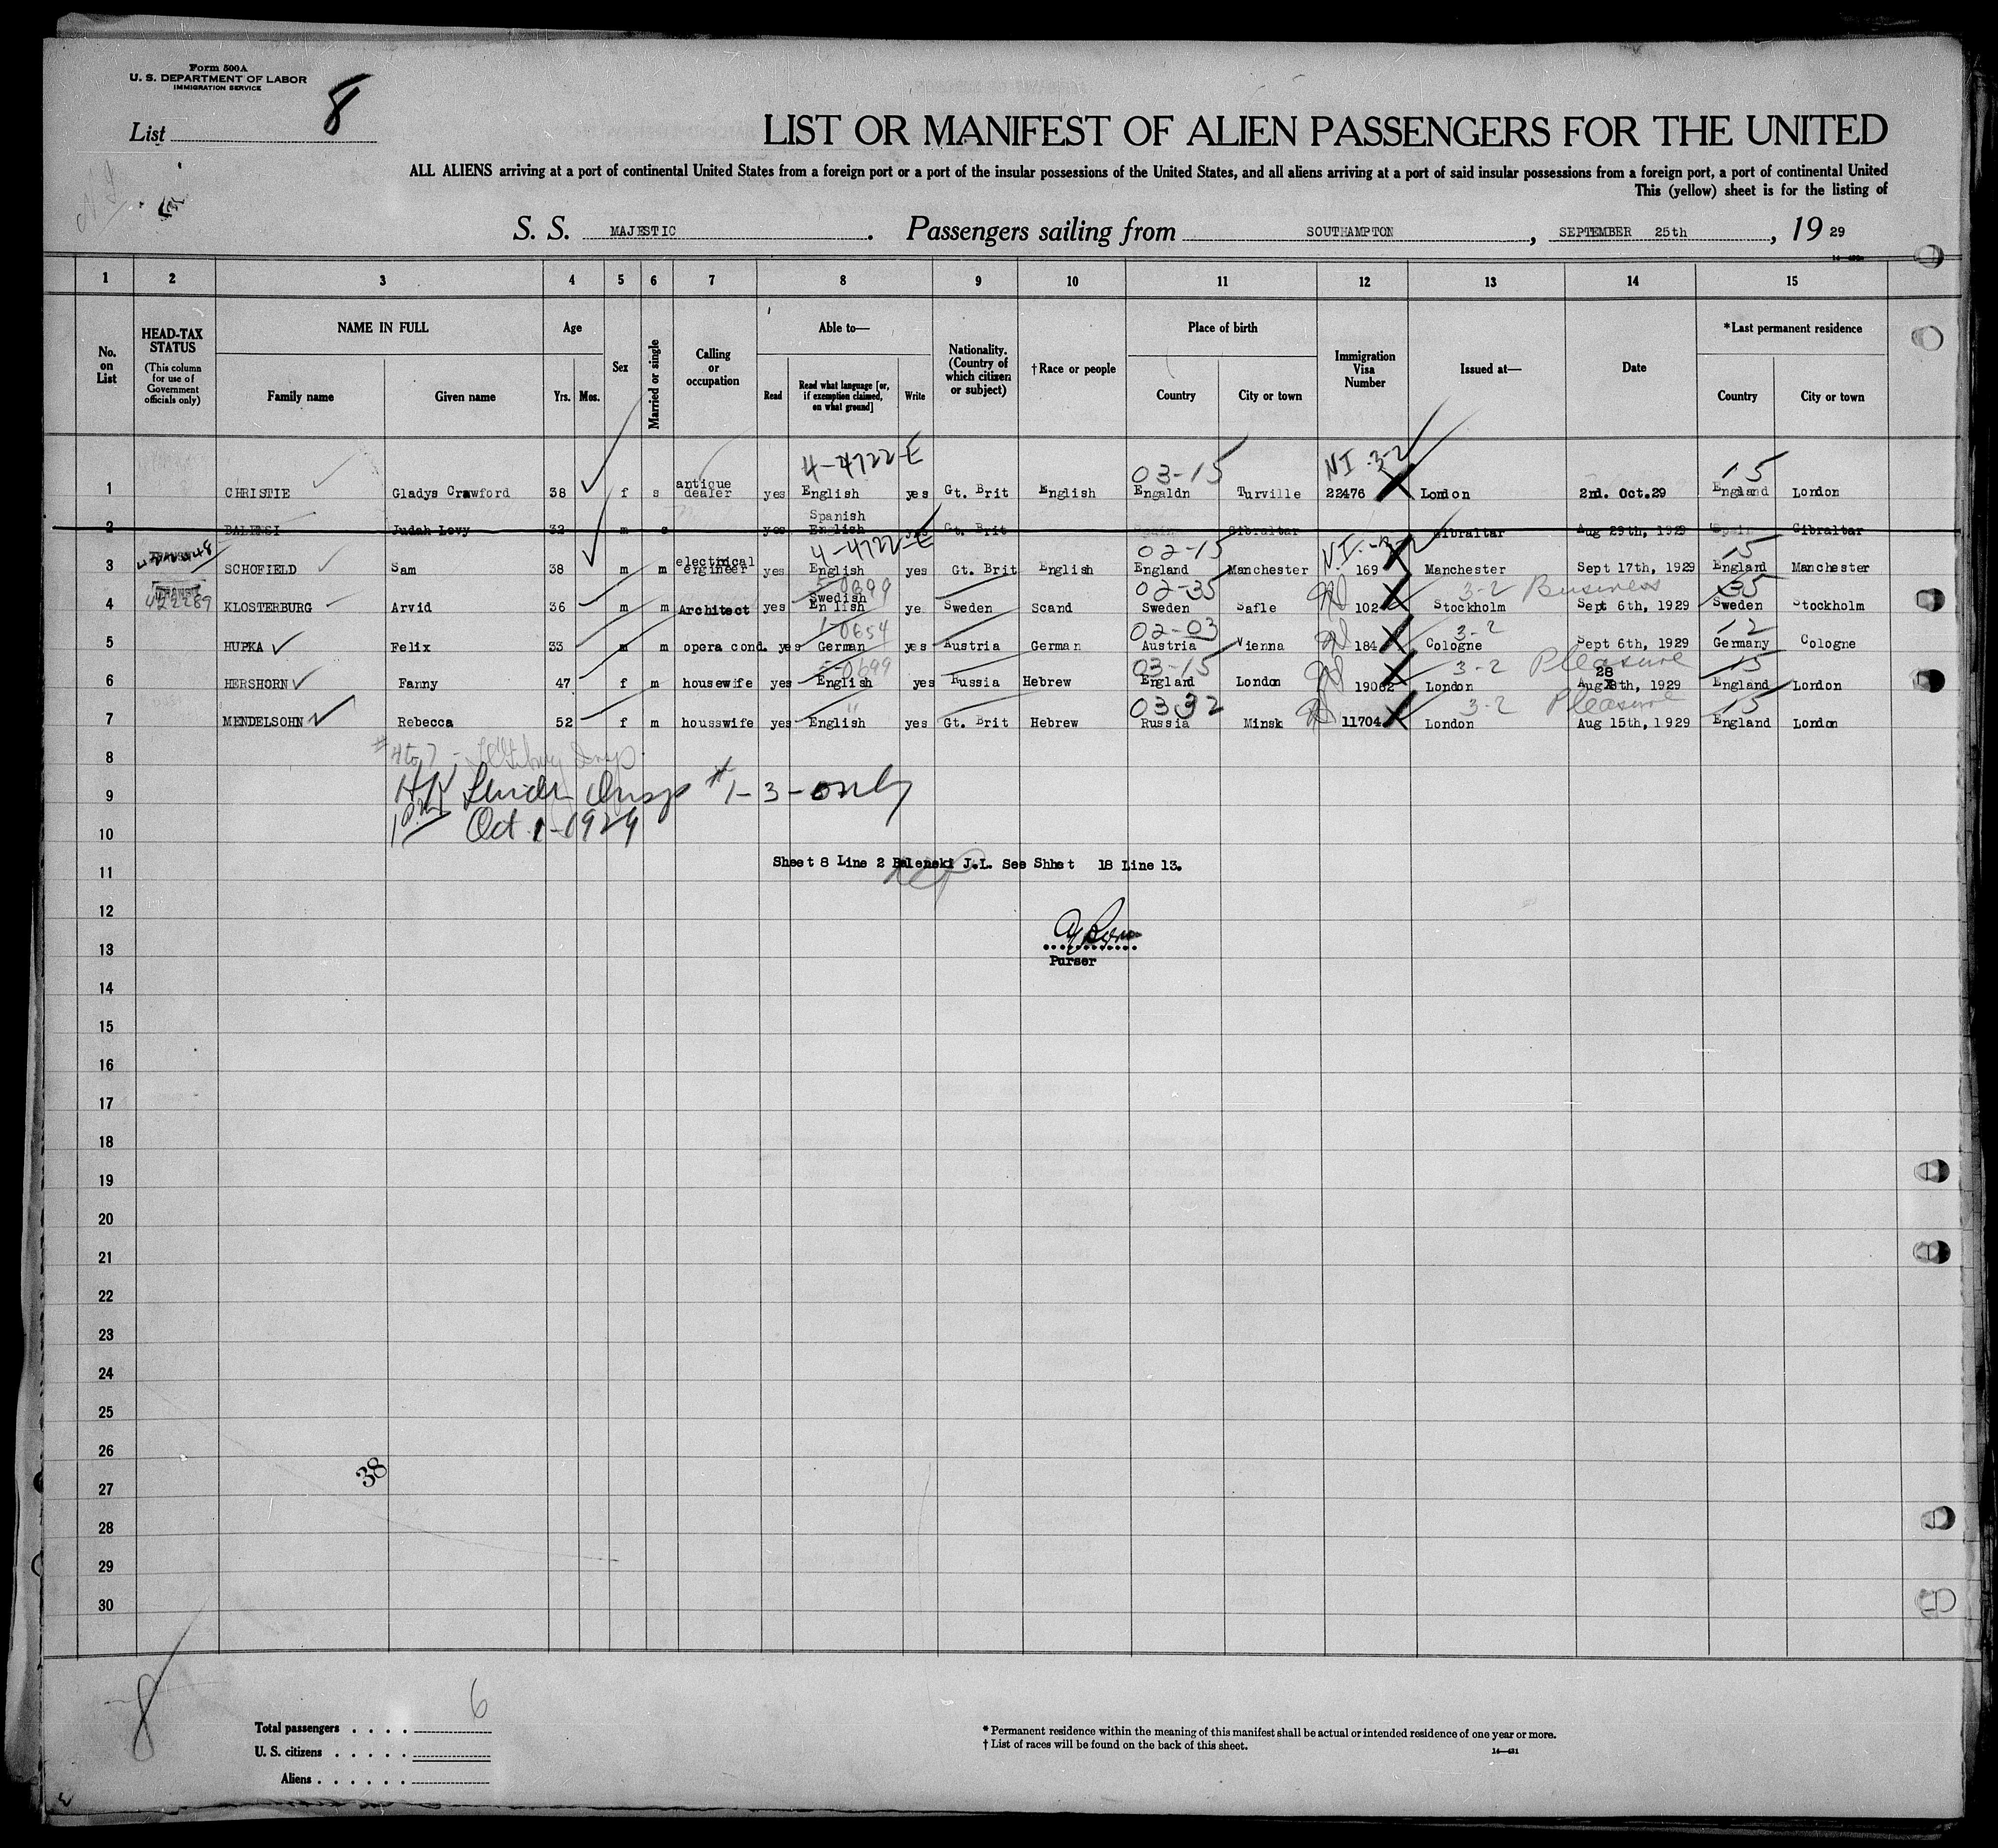 Form 500A
U. S. DEPARTMENT OF LABOR
IMMIGRATION SERVICE
List 8
LIST OR MANIFEST OF ALIEN PASSENGERS FOR THE UNITED
ALL ALIENS arriving at a port of continental United States from a foreign port or a port of the insular possessions of the United States, and all aliens arriving at a port of said insular possessions from a foreign port, a port of continental United
This (yellow) sheet is for the listing of
S. S. MAJESTIC. Passengers sailing from SOUTHAMPTON, SEPTEMBER 25th, 19 29
1 2 3 4 5 6 7 8 9 10 11 12 13 14 15
No. on List
HEAD-TAX STATUS
(This column for use of Government officials only)
NAME IN FULL
Family name Given name
Age
Yrs. Mos.
Sex
Married or single
Calling or occupation
Able to—
Read Read what language [or, if exemption claimed, on what ground] Write
Nationality. (Country of which citizen or subject)
†Race or people
Place of birth
Country City or town
Immigration Visa Number
Issued at—
Date
*Last permanent residence
Country City or town
4-4722-E 03-15 NI 3-2 15
1 CHRISTIE Gladys Crawford 38 f s antique dealer yes English yes Gt. Brit English Engaldn Turville 22476 London 2nd. Oct.29 England London
Spanish
2 Judah Levy 32 m s yes English yes Gt. Brit Gibraltar Gibraltar Aug 29th, 1929 Spain Gibraltar
4-4722-E 02-15 N.I. 15
3 SCHOFIELD Sam 38 m m electrical engineer yes English yes Gt. Brit English England Manchester 169 Manchester Sept 17th, 1929 England Manchester
TRANSIT 422289 5-0699 02-35 3-2 Business 35
4 KLOSTERBURG Arvid 36 m m Architect yes Swedish En lish ye Sweden Scand Sweden Safle 102 Stockholm Sept 6th, 1929 Sweden Stockholm
1-0654 02-03 3-2 12
5 HUPKA Felix 33 m m opera cond. yes German yes Austria German Austria Vienna 184 Cologne Sept 6th, 1929 Germany Cologne
5-0699 03-15 3-2 Pleasure 15
28
6 HERSHORN Fanny 47 f m housewife yes English yes Russia Hebrew England London 19062 London Aug 8th, 1929 England London
" 03 32 3-2 Pleasure 15
7 MENDELSOHN Rebecca 52 f m housswife yes English yes Gt. Brit Hebrew Russia Minsk 11704 London Aug 15th, 1929 England London
8 #4 to 7 -
9 Insp #1-3-only
10 Oct 1-1929
Sheet 8 Line 2 Balenski J.L. See Shhet 18 Line 13.
11
12
13
Purser
14
15
16
17
18
19
20
21
22
23
24
25
26
38
27
28
29
30
8
Total passengers . . . . 6
U. S. citizens . . . . .
Aliens . . . . . .
* Permanent residence within the meaning of this manifest shall be actual or intended residence of one year or more.
† List of races will be found on the back of this sheet.
14—431